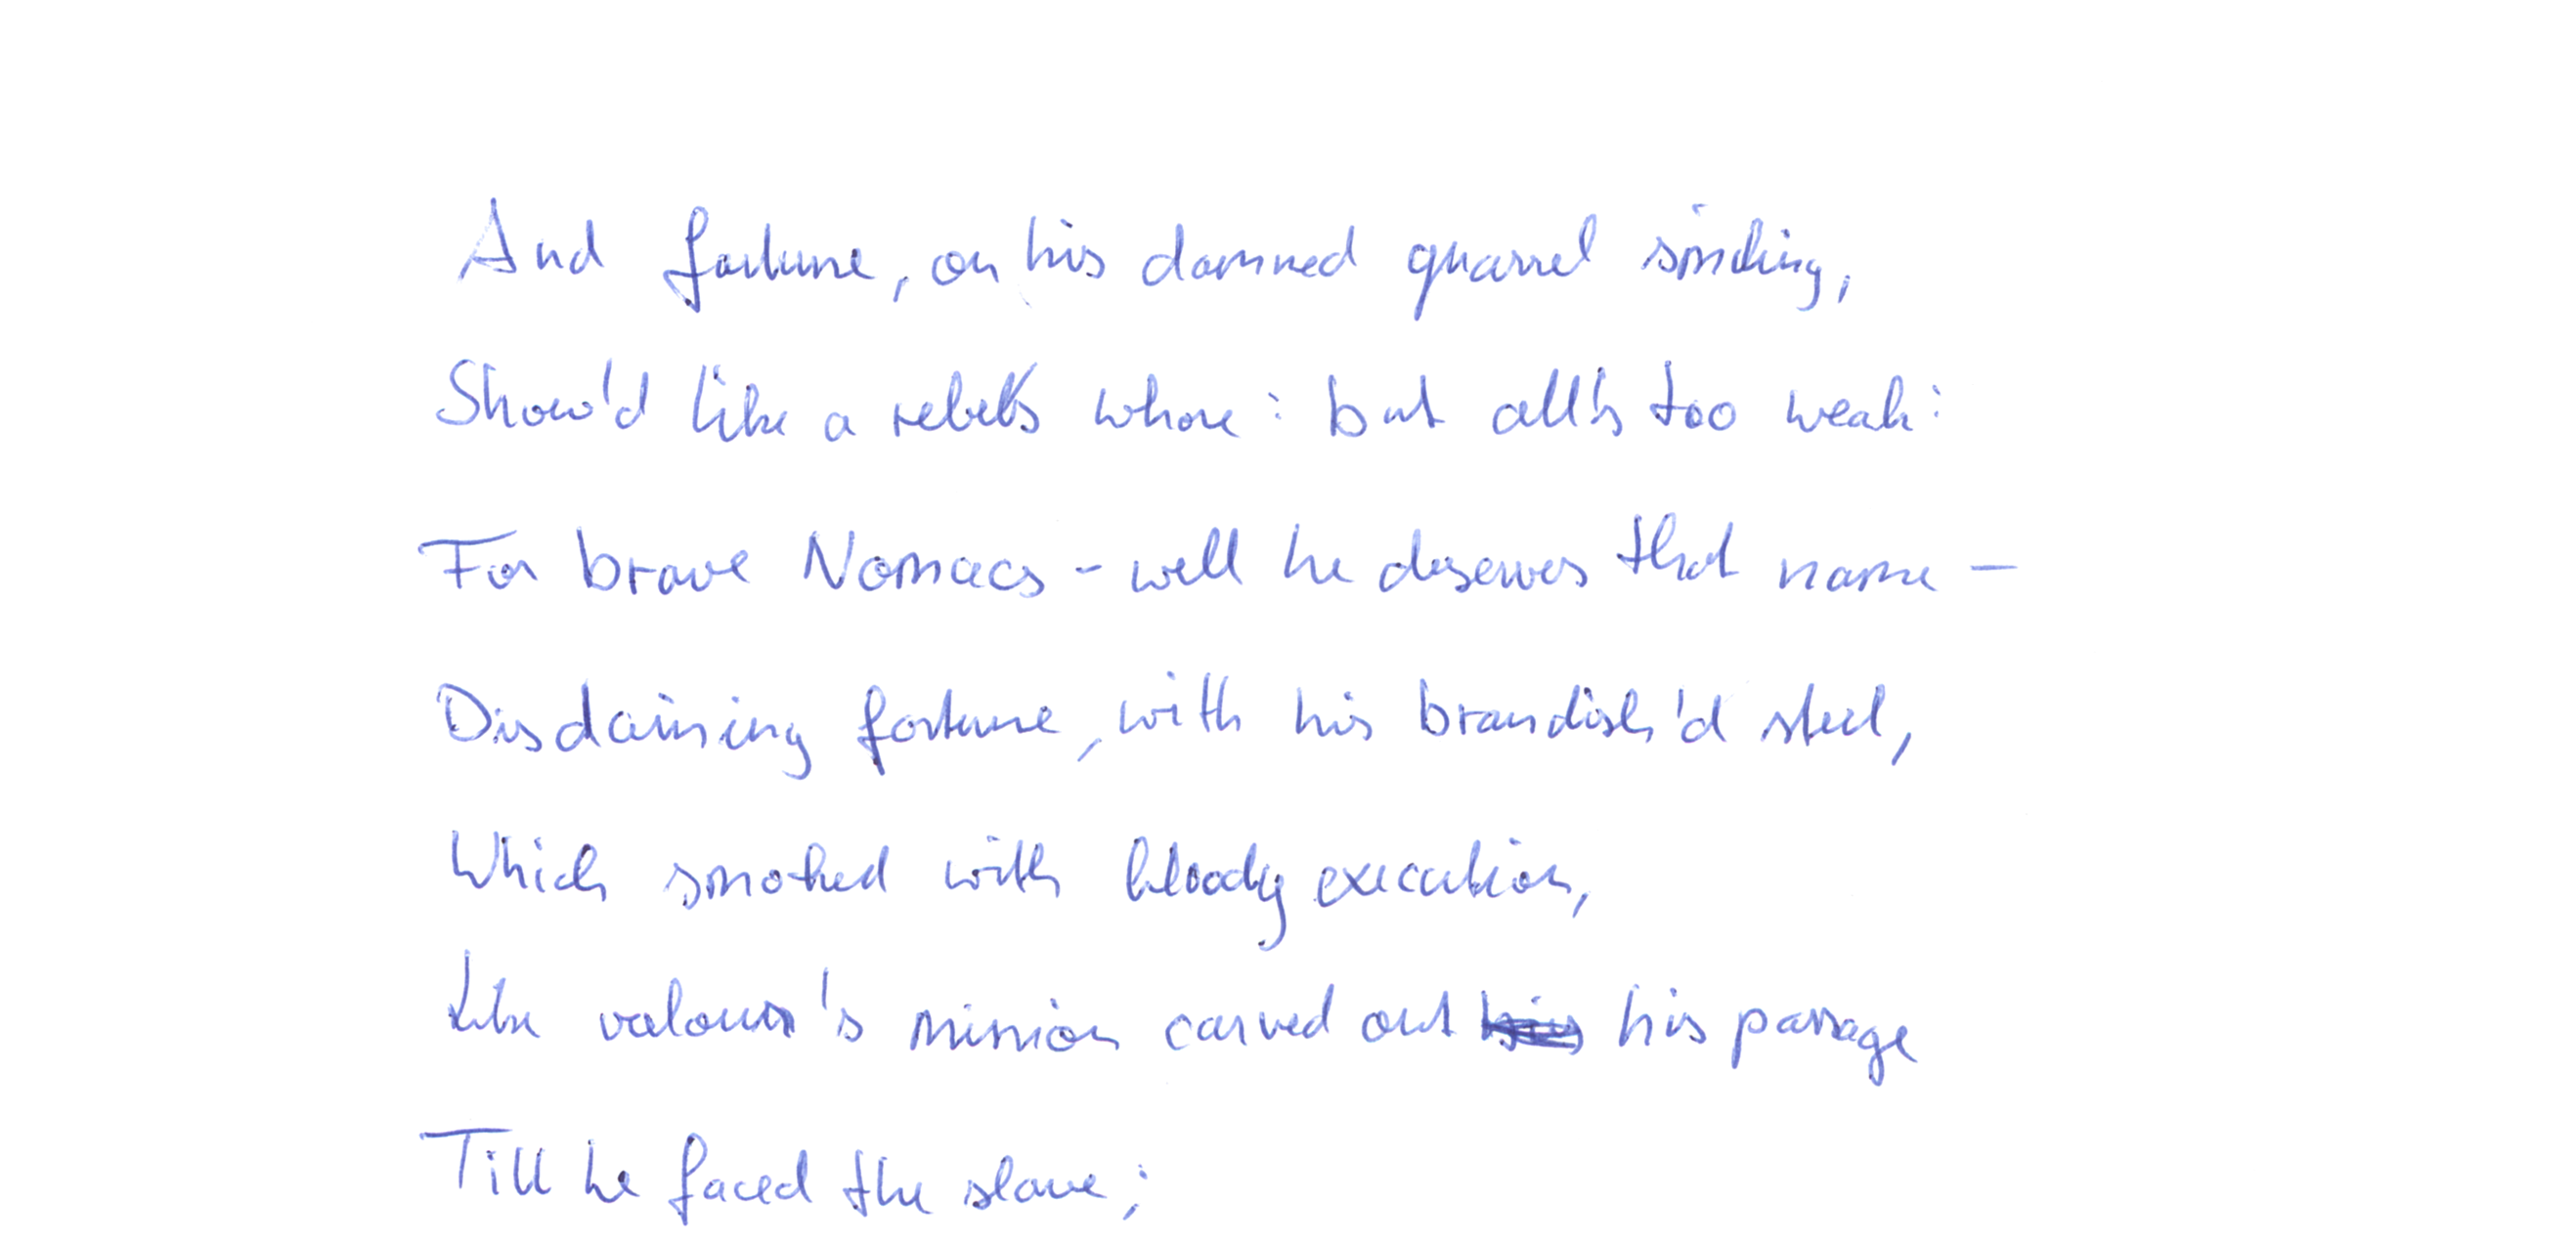 And fortune, on his damned quarrel smiling,
Show'd like a rebel's whore: but all's too weak:
For brave Nomacs - well he deserves that name -
Disdaining fortune, with his brandish'd steel,
Which smoked with bloody execution,
Like valour's minion carved out his his passage
Till he faced the slave;